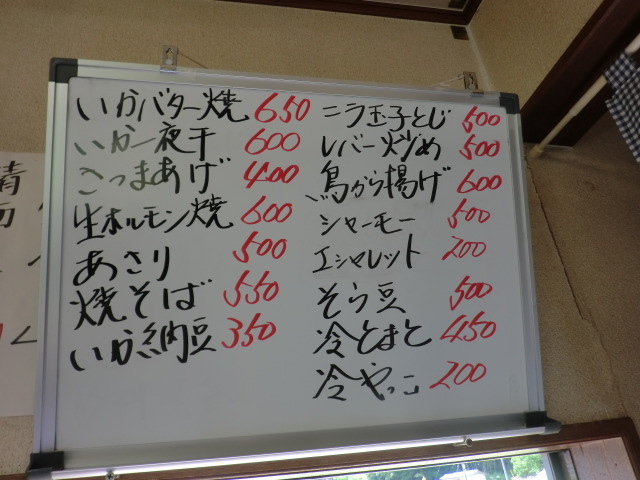 いかバター焼 650
いか一夜干 600
さつまあげ 400
生ホルモン焼 600
あさり 500
焼そば 550
いか納豆 350
ニラ玉子とじ 500
レバー炒め 500
鳥から揚げ 600
シャーモー 500
エシャレット 200
そら豆 500
冷とまと 450
冷やっこ 200